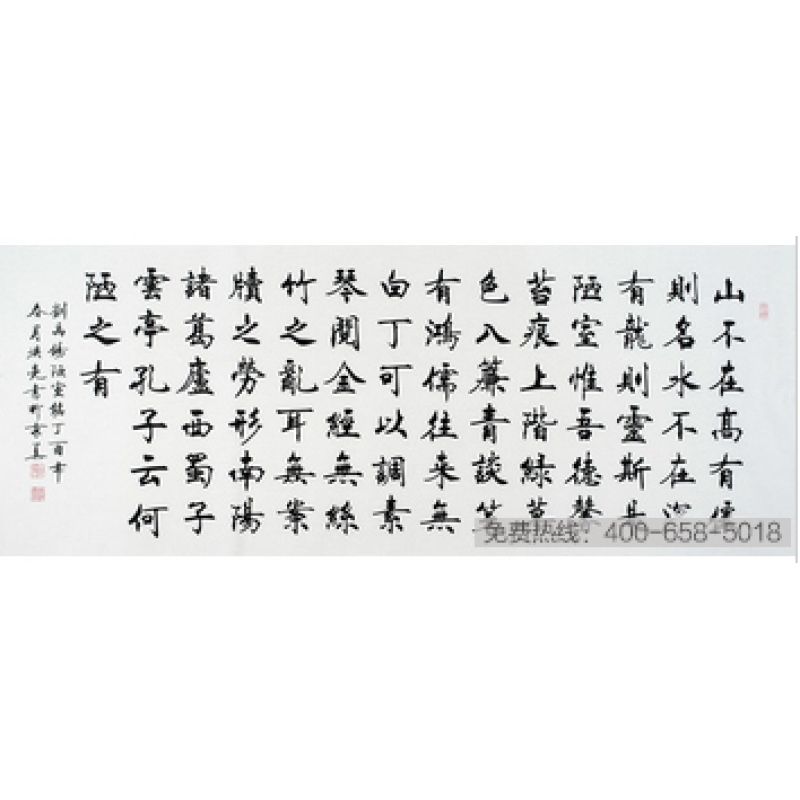 山不在高有
則名水不在深
有龍則靈斯是
陋室惟吾德馨
苔痕上階綠草
色入簾青談笑
有鴻儒往來無
白丁可以調素
琴閱金經無絲
竹之亂耳無案
牘之勞形南陽
諸葛廬西蜀子
雲亭孔子云何
陋之有
劉禹錫陋室銘丁酉年
春月洪亮書於京
免费热线：400-658-5018